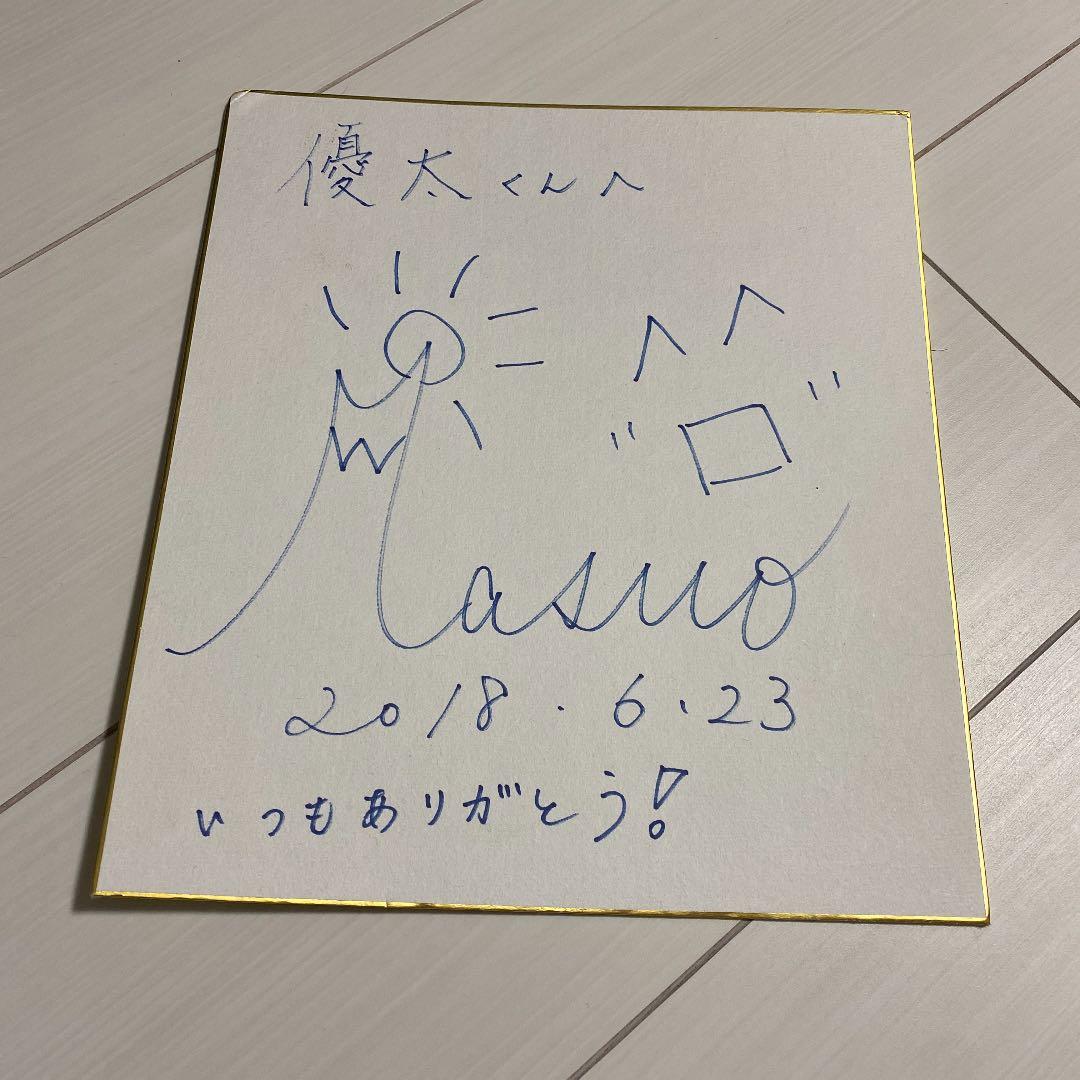 優太くんへ
Masuo
2018.6.23
いつもありがとう!